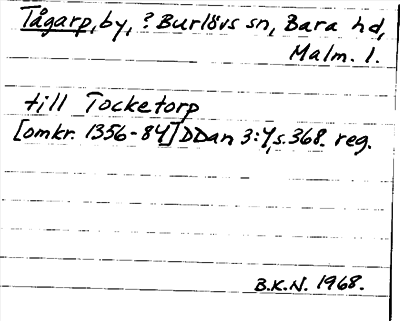 Tågarp, by, ? Burlövs sn, Bara hd,
Malm. l.
till Tocketorp
[omkr. 1356-84] DDan 3:4, s. 368. reg.
B.K.N. 1968.